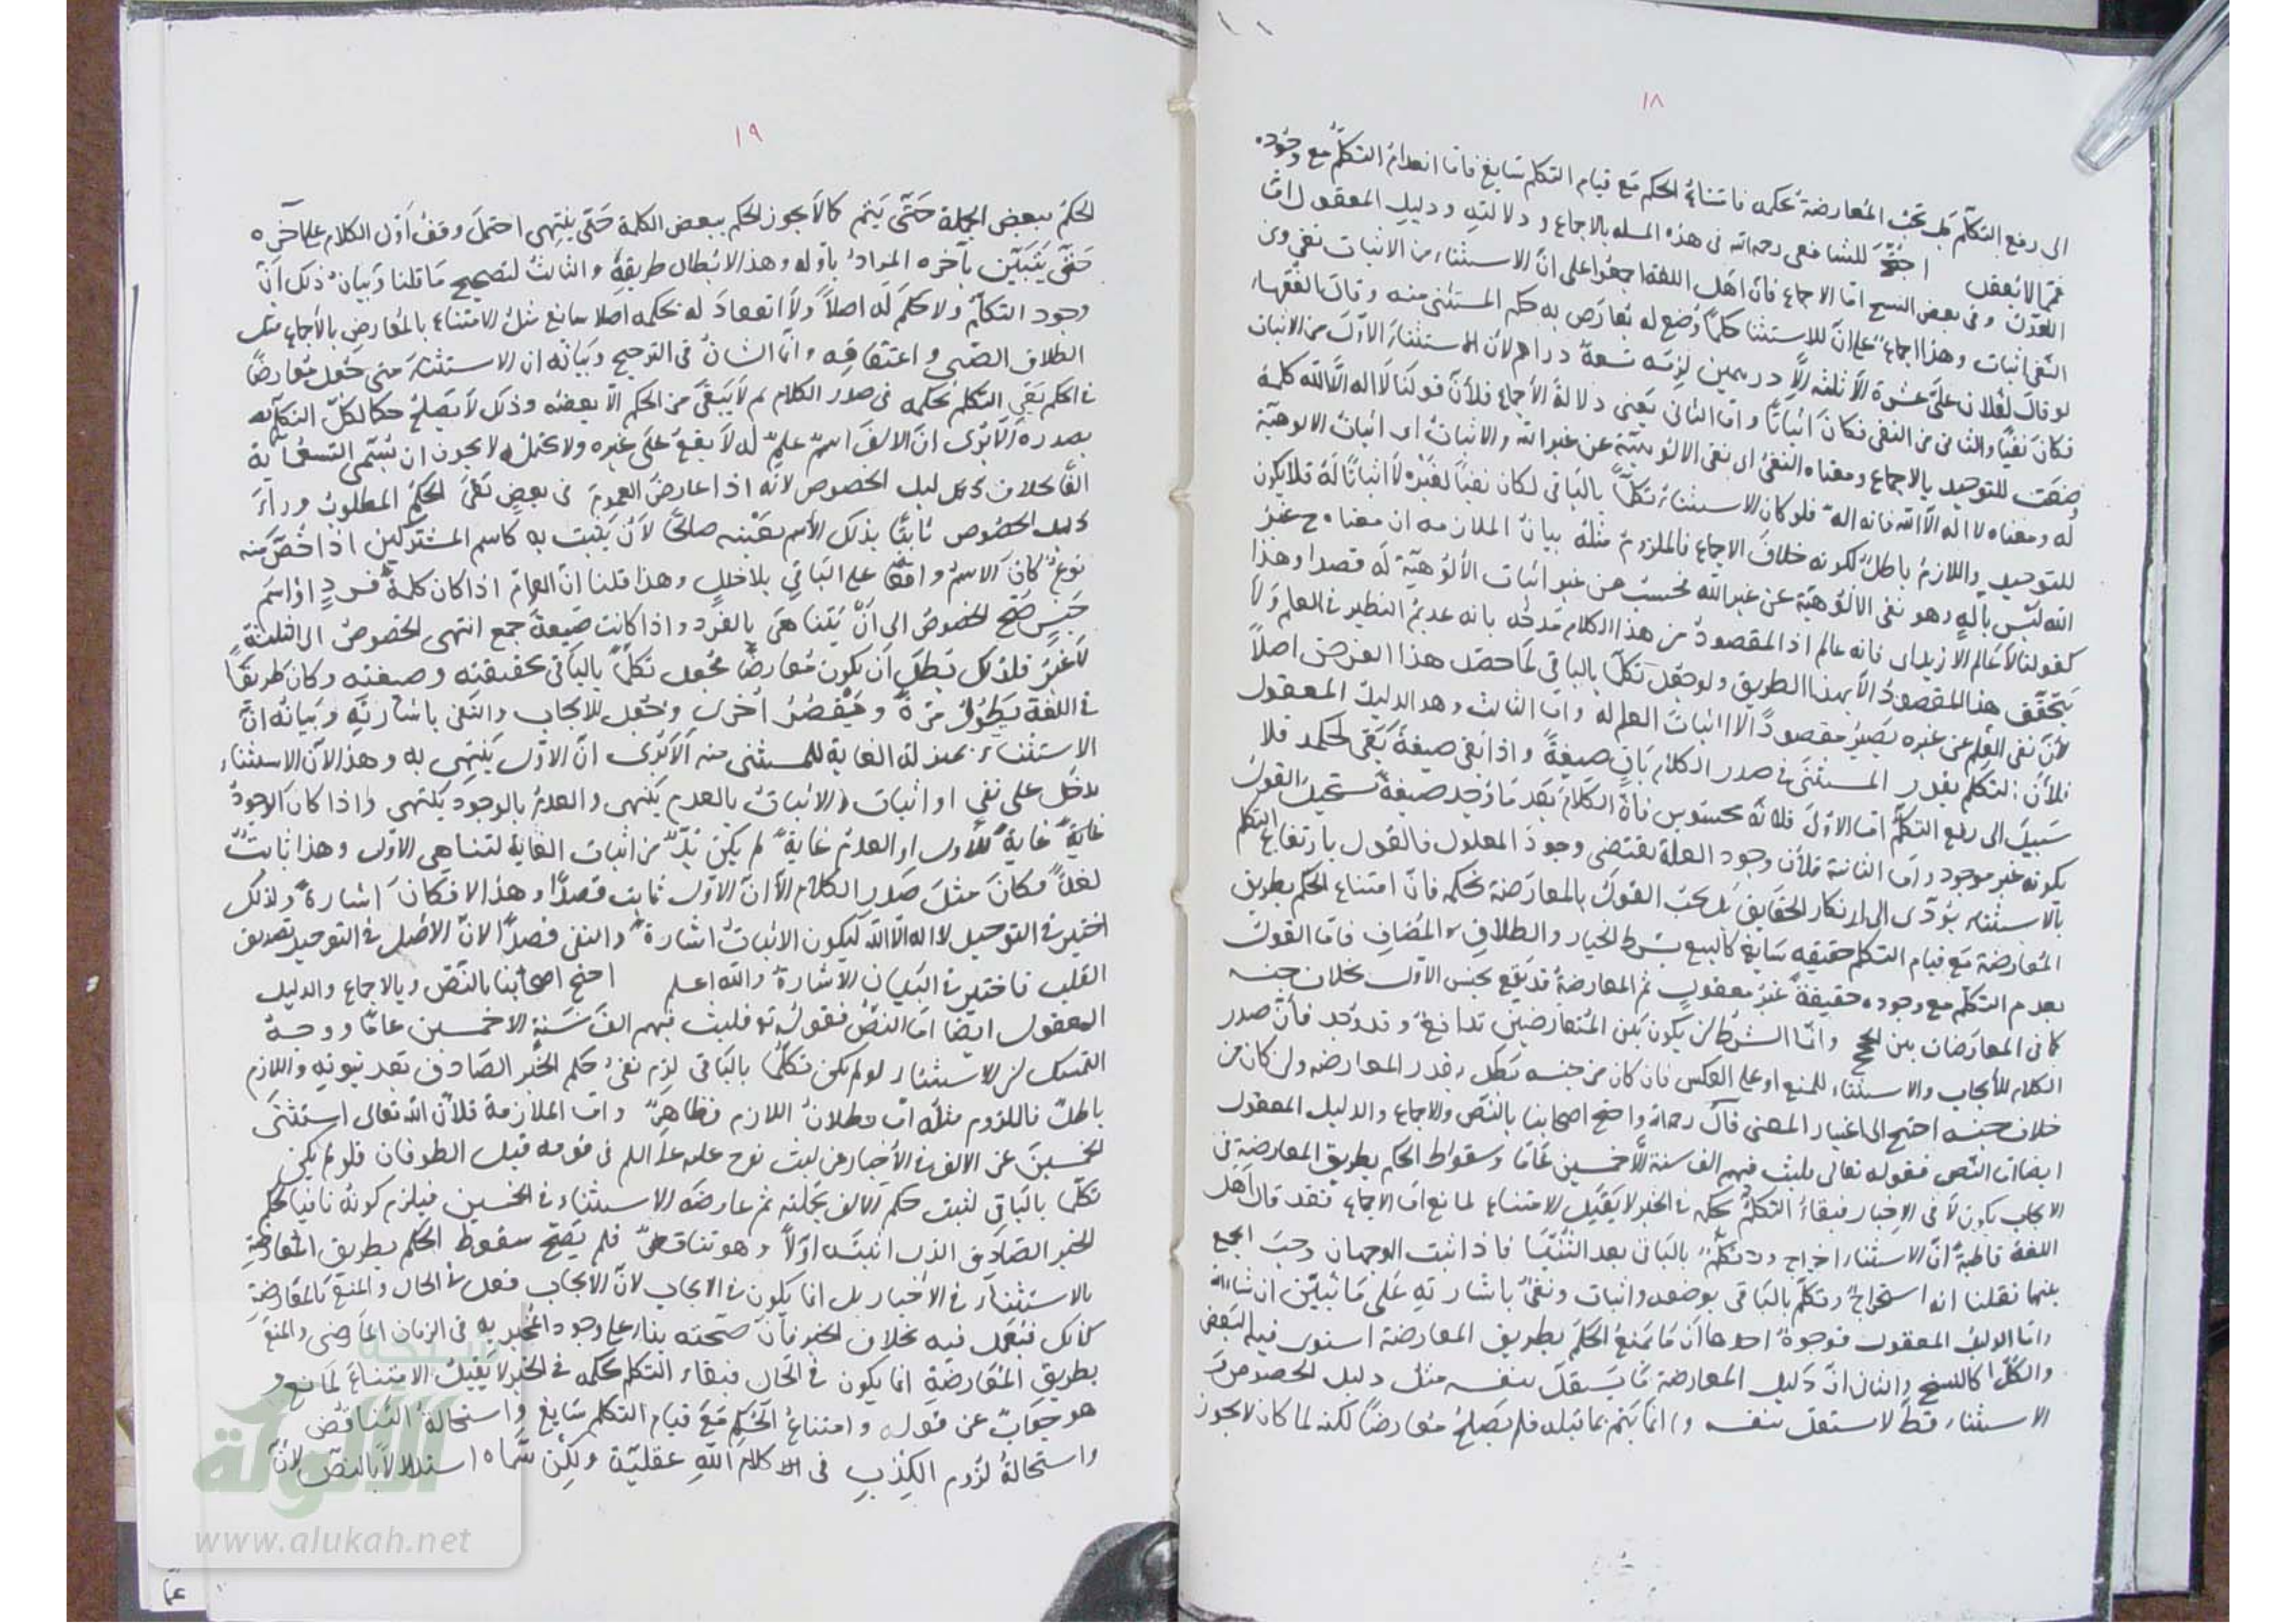 ١٨
الى رفع التكلم بل تحت المعارضة بحكمه فامتناع الحكم مع قيام التكلم سايغ فاما انعدام التكلم مع وجوده
فمما لا يعقل احتج للشافعى رحمه الله فى هذه المسله بالاجماع ودلالته ودليل المعقول اما
اللغة وفى بعض النسخ اما الاجماع فان اهل اللغة اجمعوا على ان الاستثناء من الاثبات نفى ومن
النفى اثبات وهذا اجماع على ان للاستثنا حكما وضع له يعارض به حكم المستثنى منه وقال الفقهاء
لو قال لفلان على عشرة الا ثلثه الا درهمين لزمه تسعة دراهم لان الاستثناء الاول من الاثبات
فكان نفيا والثانى من النفى فكان اثباتا واما الثانى يعنى دلالة الاجماع فلان قولنا لا اله الا الله كلمة
وضعت للتوحيد بالاجماع ومعناه النفى اى نفى الالوهية عن غير الله والاثبات اى اثبات الالوهية
له ومعناه لا اله الا الله فانه اله فلو كان الاستثناء تكلما بالباقى لكان نفيا لغيره لا اثباتا له فلا يكون
للتوحيد واللازم باطل لكونه خلاف الاجماع فالملزوم مثله بيان الملازمه ان معناه ح غير
الله ليس باله وهو نفى الالوهية عن غير الله فحسب من غير اثبات الالوهية له قصدا وهذا
كقولنا لا عالم الا زيد اى فانه عالم اذ المقصود من هذا الكلام مدحه بانه عديم النظير فى العلم ولا
يتحقق هذا المقصود الا بهذا الطريق ولو جعل تكلما بالباقى لما حصل هذا الغرض اصلا
لان نفى العلم عن غيره يصير مقصودا لا اثبات العلم له واما الثالث وهو الدليل المعقول
فلان التكلم بقدر المستثنى فى صدر الكلام باق صيغة واذا بقى صيغة بقى لحكمه فلا
سبيل الى رفع التكلم اما الاول فلانه محسوس فان الكلام بعد ما وجد صيغة تستحيل القول
بكونه غير موجود واما الثانية فلان وجود العلة يقتضى وجود المعلول فالقول بارتفاع التكلم
بالاستثناء يؤدى الى انكار الحقايق بل تحت القول بالمعارضة بحكمه فان امتناع الحكم بطريق
المعارضة مع قيام التكلم حقيقه سايغ كالبيع بشرط الخيار والطلاق المضاف فاما القول
بعدم التكلم مع وجوده حقيقة غير معقول ثم المعارضة قد يقع بجنس الاول بخلاف جنسه
كما فى المعارضات بين الحجج وانما الشرط ان يكون بين المتعارضين تدافع وقد وجد فان صدر
الكلام للايجاب والاستثناء للمنع او على العكس فان كان من جنسه بطل بقدر المعارضه وان كان من
خلاف جنسه احتج الى اعتبار المعنى قال رحمه الله واحتج اصحابنا بالنص والاجماع والدليل المعقول
ايضا اما النص فقوله تعالى فلبث فيهم الف سنة الا خمسين عاما وسقوط الحكم بطريق المعارضة فى
الايجاب يكون لا فى الاخبار فبقاء التكلم بحكمه فى الخبر لا يقبل الامتناع لمانع اما الاجماع فقد قال اهل
اللغة قاطبة ان الاستثناء اخراج وتكلم بالباقى بعد الثنيا فاذا ثبت الوجهان وجب الجمع
بينهما فقلنا انه استخراج وتكلم بالباقى بوضعه واثبات ونفى باشارته على ما نبين ان شاء الله
واما الدليل المعقول فوجوه احدها ان ما يمنع الحكم بطريق المعارضة استوى فيه البعض
والكل كالنسخ والثانى ان دليل المعارضة ما يستقل بنفسه مثل دليل الخصوص و
الاستثناء قط لا يستقل بنفسه وانما يتم بما قبله فلم يصلح معارضا لكنه لما كان لا يجوز
١٩
الحكم ببعض الجملة حتى يتم كما لا يجوز الحكم ببعض الكلمة حتى ينتهى احتمل وقف اول الكلام على آخره
حتى يتبين بآخره المراد باوله وهذا الابطال طريقة والثالث لتصحيح ما قلنا وبيان ذلك ان
وجود التكلم ولا حكم له اصلا ولا انعقاد له بحكمه اصلا سايغ مثل الامتناع بالمعارض بالاجماع مثل
الطلاق الصبى واعتقاقه وانما الشان فى الترجيح وبيانه ان الاستثناء متى جعل معارضا
فى الحكم بقى التكلم بحكمه فى صدر الكلام ثم لا يبقى من الحكم الا بعضه وذلك لا يصلح حكما لكل التكلم
بصدره الا ترى ان الالف اسم علم له لا يقع على غيره ولا يحتمله لا يجوز ان يسمى التسعماية
الفا بخلاف دليل الخصوص لانه اذا عارض العموم فى بعض بقى الحكم المطلوب وراء
دليل الخصوص ثابتا بذلك الاسم بعينه صالحا لان يثبت به كاسم المشتركين اذا خص منه
نوع كان الاسم واقعا على الباقى بلا خلل وهذا قلنا ان العام اذا كان كلمة فرد او اسم
جنس صح الخصوص الى ان يتناهى بالفرد واذا كانت صيغة جمع انتهى الخصوص الى الثلثة
لا غير فلذلك بطل ان يكون معارضا فجعل تكلما بالباقى بحقيقته وصيغته وكان طريقا
فى اللغة يطول مرة ويقصر اخرى وجعل للايجاب والنفى باشارته وبيانه ان
الاستثناء بمنزلة الغاية للمستثنى منه الا ترى ان الاول ينتهى به وهذا لان الاستثناء
يدخل على نفى او اثبات والاثبات بالعدم ينتهى والعدم بالوجود ينتهى واذا كان الوجود
غاية للاول او العدم غاية لم يكن بد من اثبات الغاية لتناهى الاول وهذا ثابت
لغة فكان مثل صدر الكلام الا ان الاول ثابت قصدا وهذا لا فكان اشارة ولذلك
اختير فى التوحيد لا اله الا الله ليكون الاثبات اشارة والنفى قصدا لان الاصل فى التوحيد تصديق
القلب فاختير فى البيان الاشارة والله اعلم احتج اصحابنا بالنص وبالاجماع والدليل
المعقول ايضا اما النص فقوله تع فلبث فيهم الف سنة الا خمسين عاما ووجه
التمسك ان الاستثناء لو لم يكن تكلما بالباقى لزم نفى حكم الخبر الصادق بعد ثبوته واللازم
باطل فالملزوم مثله اما بطلان اللازم فظاهر واما الملازمة فلان الله تعالى استثنى
الخمسين عن الالف فى الاخبار عن لبث نوح عليه السلم فى قومه قبل الطوفان فلو لم يكن
تكلما بالباقى لثبت حكم الالف بجملته ثم عارضه الاستثناء فى الخمسين فيلزم كونه نافيا لحكم
الخبر الصادق الذى اثبته اولا وهو تناقض فلم يصح سقوط الحكم بطريق المعارضة
بالاستثناء فى الاخبار بل انما يكون فى الايجاب لان الايجاب فعل فى الحال والمنع بالمعارضة
كذلك فيعمل فيه بخلاف الخبر فان صحته بناء على وجود المخبر به فى الزمان الماضى والمنع
بطريق المعارضة انما يكون فى الحال فبقاء التكلم بحكمه فى الخبر لا يقبل الامتناع لمانع و
هو جواب عن قوله وامتناع الحكم مع قيام التكلم سايغ واستحالة التناقض
واستحالة لزوم الكذب فى كلام الله عقلية ولكن سماه استدلالا بالنص لان
الألوكة
www.alukah.net